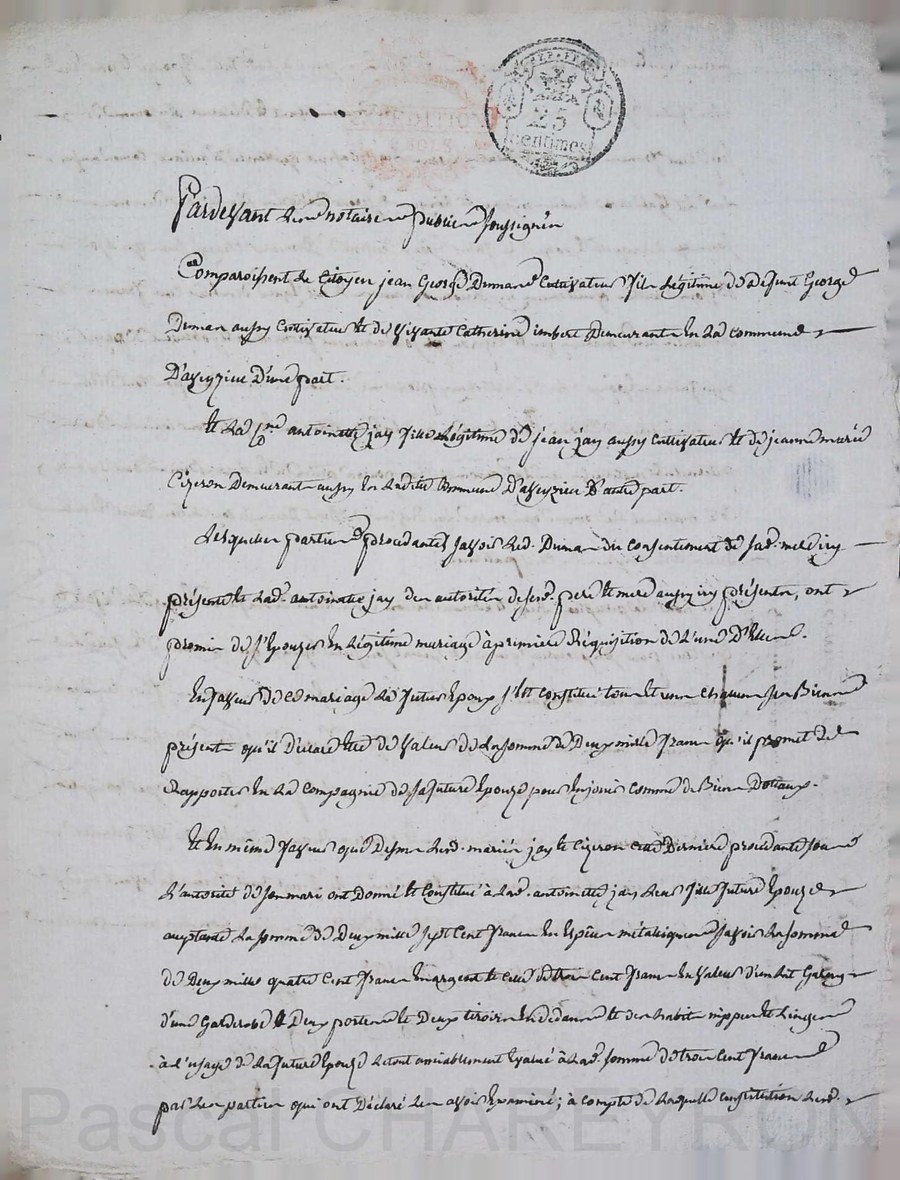 REP. FRA.
25
centimes
EXPEDITION
SOLS
Pardevant les notaires publics soussignés
Comparoissent le Citoyen jean George Duman Cultivateur fils légitime de defunt George
Duman aussy Cultivateur et de vivante Catherine imbert demeurants en la commune
D'aveyzieu D'une part.
et la Cne antoinette jay fille légitime de jean jay aussy Cultivateur et de jeanne marie
Cizeron demeurant aussy en ladite Commune D'aveyzieu D'autre part.
Lesquelles parties procedantes savoir led. Duman du consentement de sad. mere icy
présente et lad. antoinette jay des autorités desesd. pere et mere aussy icy présents, ont
promis de s'Epouzer en légitime mariage à premiere Réquisition de L'une D'elles.
En faveur de ce mariage le futur Epoux s'est constitué tous et uns chacuns ses Biens
présents qu'il déclare être de valeur de la somme de Deux mille francs qu'il promet de
Rapporter en la Compagnie de sa future Epouze pour en jouir comme de Biens Dotaux.
Et en même faveur que dessus lesd. mariés jay et Cizeron cette Derniere procedante sous
L'autorité de son mari ont donné et constitué à lad. antoinette jay leur fille future Epouze
acceptante la somme de Deux mille sept cent francs en Espèces métalliques savoir la somme
de Deux mille quatre Cent francs en argent et celle de trois Cent francs en valeur d'un lit Garny
d'une Garderobe à Deux portes et Deux tiroirs en dedans et des habits nippes et linges
à l'usage de la future Epouze le tout amiablement Evalué à lad. somme de trois Cent francs
par les parties qui ont Déclaré les avoir Examiné; à compte de laquelle constitution lesd.
Pascal CHAREYRON